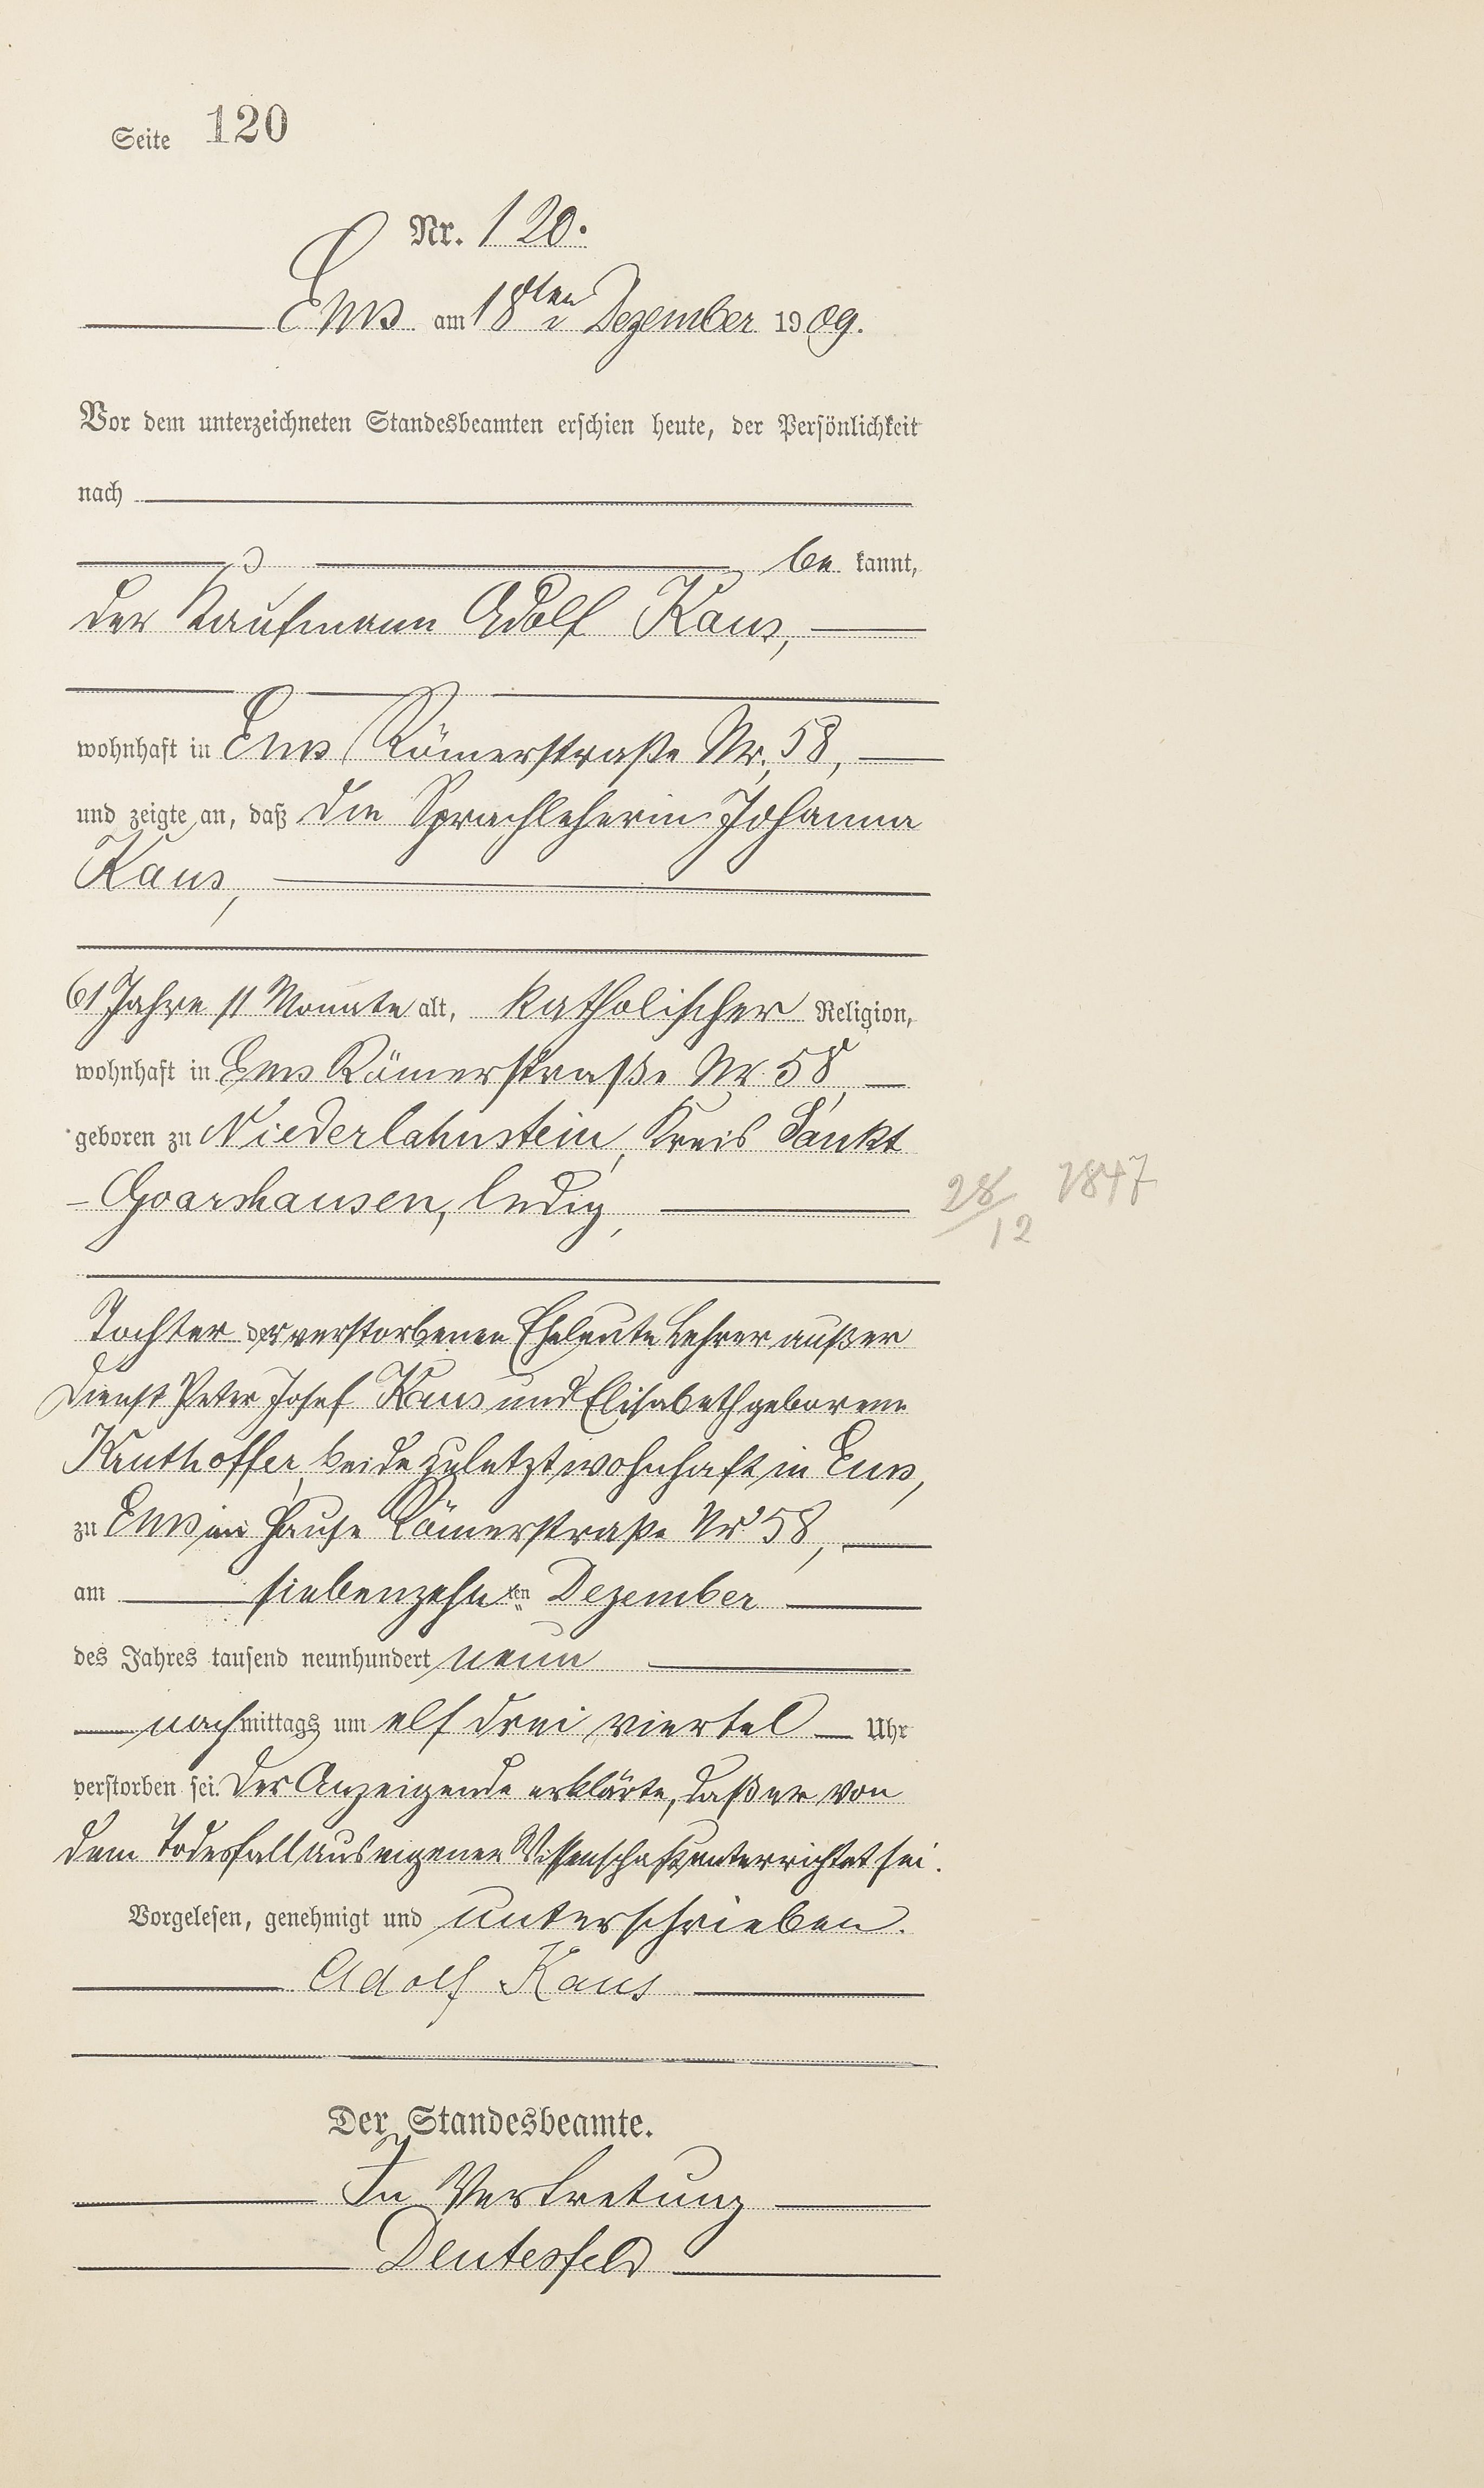 Seite 120
Nr. 120.
Ems am 18ten Dezember 1909.
Vor dem unterzeichneten Standesbeamten erschien heute, der Persönlichkeit
nach
be kannt,
der Kaufmann Adolf Kaus,
wohnhaft in Ems Römerstraße Nr. 58,
und zeigte an, daß die Sprachleherin Johanna
Kaus,
61 Jahre 11 Monate alt, katholischer Religion,
wohnhaft in Ems Römerstraße Nr. 58,
geboren zu Niederlahnstein, Kreis Sankt
-Goarshausen, ledig,
28/12 1847
Tochter der verstorbenen Eheleute Lehrer außer
Dienst Peter Josef Kaus und Elisabeth geborene
beide zuletzt wohnhaft in Ems,
zu Ems im Hause Römerstraße Nr 58,
am siebenzehnten Dezember
des Jahres tausend neunhundert neun
nachmittags um elf drei viertel Uhr
verstorben sei. Der Anzeigende erklärte, daß er von
dem Todesfall aus eigener Wissenschaft unterrichtet sei.
Vorgelesen, genehmigt und unterschrieben.
Adolf Kaus
Der Standesbeamte.
In Vertretung
Deutesfeld